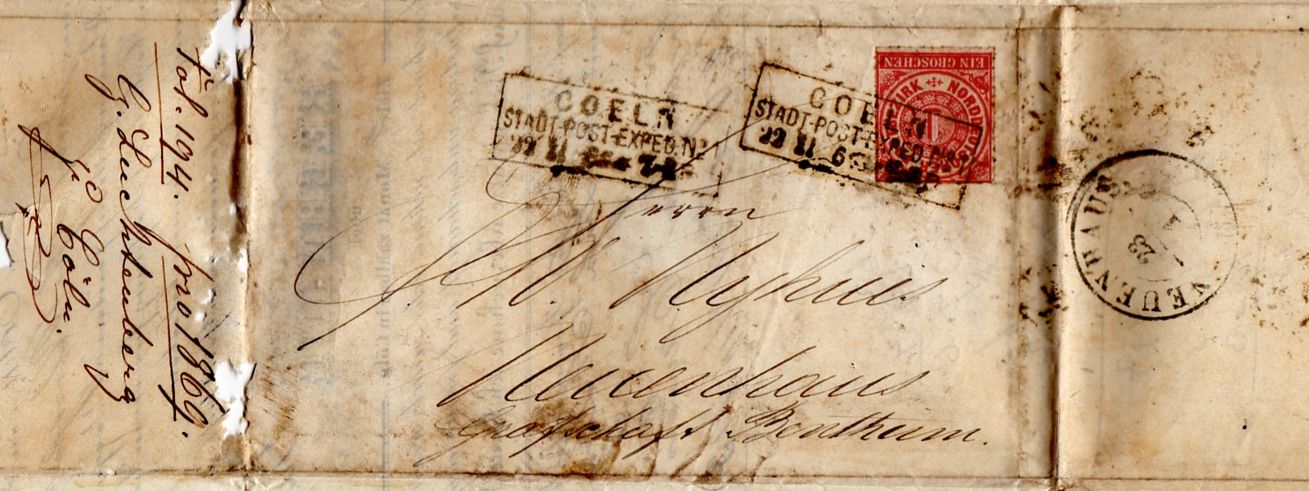 Fol. 194. pro 1869.
G. Luchtemberg
Cöln.
COELN
STADT-POST-EXPED. No
22 11 6
COELN
STADT-POST-EXPED. No
22 11 6
EIN GROSCHEN
NORDDEUT
1
Herrn
Nyhuis
Neuenhaus
Grafschaft Bentheim.
NEUENHAUS
23